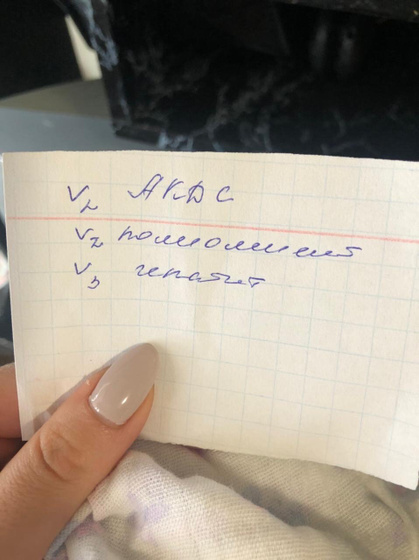 V₂ АКДС
V₂ полиомиелит
V₃ гепатит